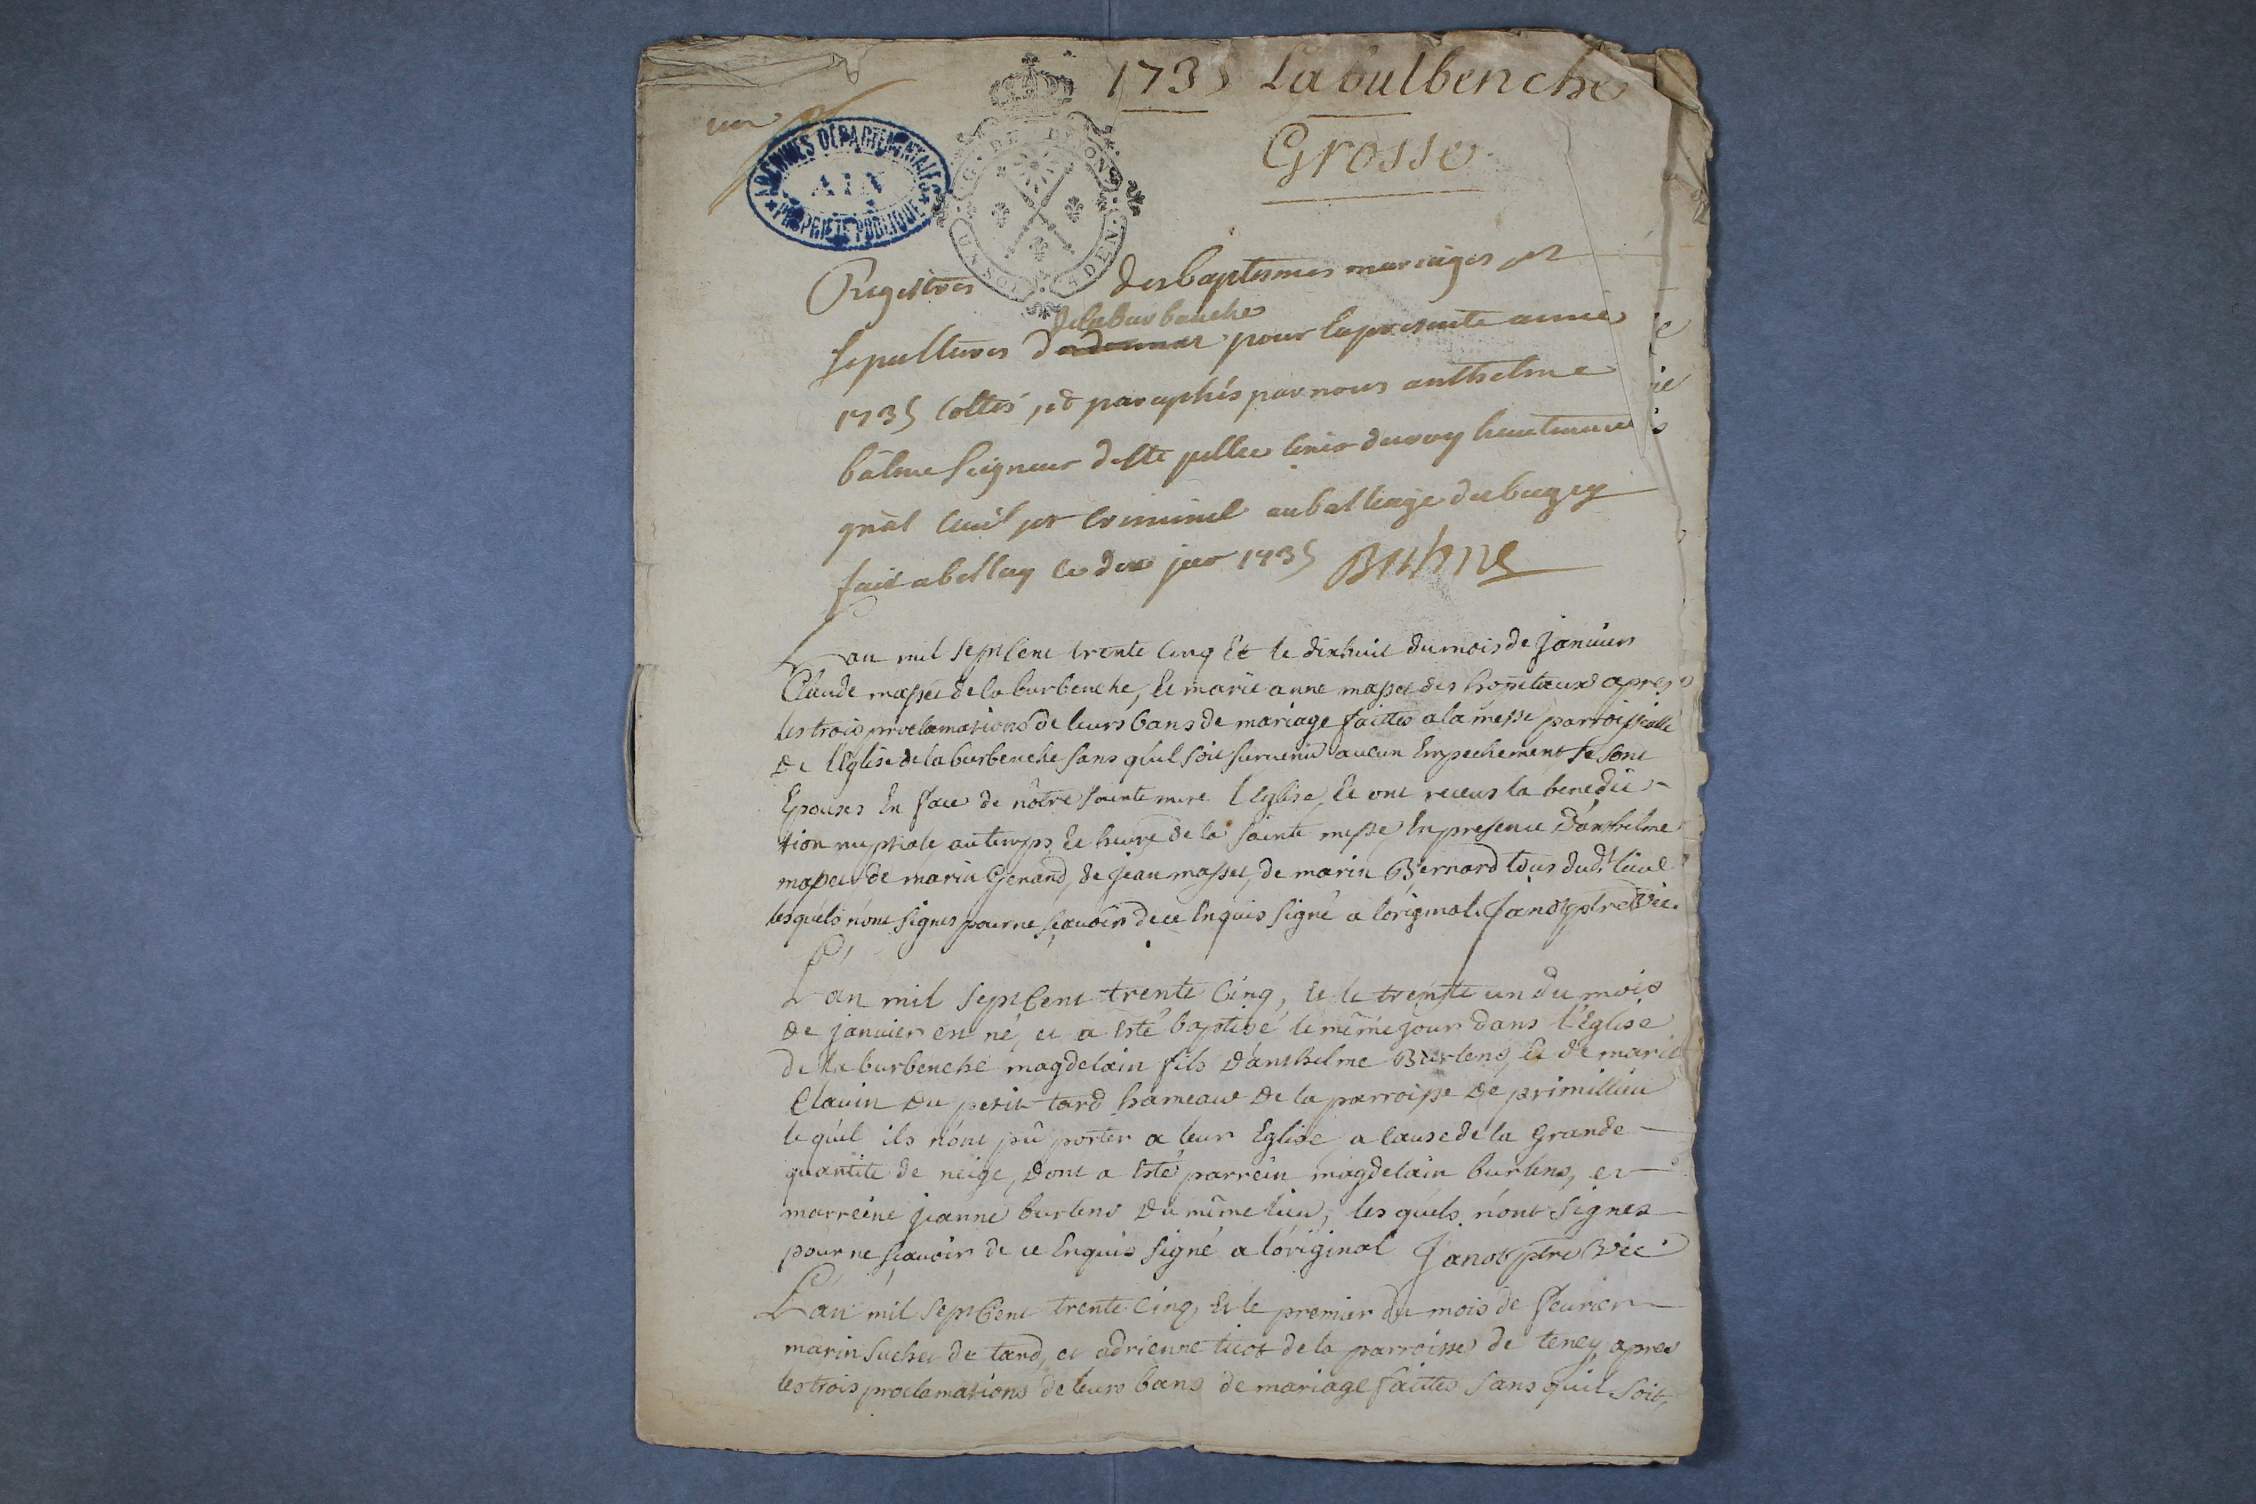 1735 La bulbenche
Grosse
un
ARCHIVES DÉPARTEMENTALES
AIN
PROPRIÉTÉ PUBLIQUE
G. DE DIJON
UN SOL DEN
Registres des baptesmes mariages et
de la burbenche
sepultures pour la presente année
1735 cottés, et paraphés par nous anthelme
balme seigneur de Ste jullie coner du roy lieutenant
gnal civil et criminel au balliage du bugey
fait a belley le dix jer 1735 Balme
Lan mil sept cent trente cinq et le dixhuit du mois de janvier
Claude masset de la burbenche, et marie anne masset des hopitaux apres
les trois proclamations de leurs bans de mariage faittes a la messe parroissialle
de l'Eglise de la burbenche sans qu'il soit survenu aucun Empechement se sont
Epousés En face de nôtre sainte mere l'Eglise, et ont receus la benedic-
tion nuptiale au temps et heure de la sainte messe En presence D'anthelme
masset de marin Gerand, de jean masset, de marin Bernard tous dudt lieu
lesquels n'ont signes pour ne sçavoir de ce Enquis signé a l'original. Janot ptre Vic.
L'an mil sept cent trente cinq, et le trente un du mois
de janvier est né, et a esté baptisé le même jour dans l'Eglise
de la burbenche magdelain fils D'anthelme Burlens, et de marie
Clavin du petit tard hameau de la parroisse de primillieu
lequ'el ils n'ont pû porter a leur Eglise a cause de la grande
quantite de neige, dont a esté parrein magdelain burlens, et
marreine jeanne burlens du même lieu, lesquels n'ont signes
pour ne sçavoir de ce Enquis signé a l'original Janot ptre Vic.
L'an mil sept cent trente cinq, et le premier du mois de fevrier
marin suchet de tard, et adrienne ticot de la parroisse de teney apres
les trois proclamations de leurs bans de mariage faittes sans qu'il soit